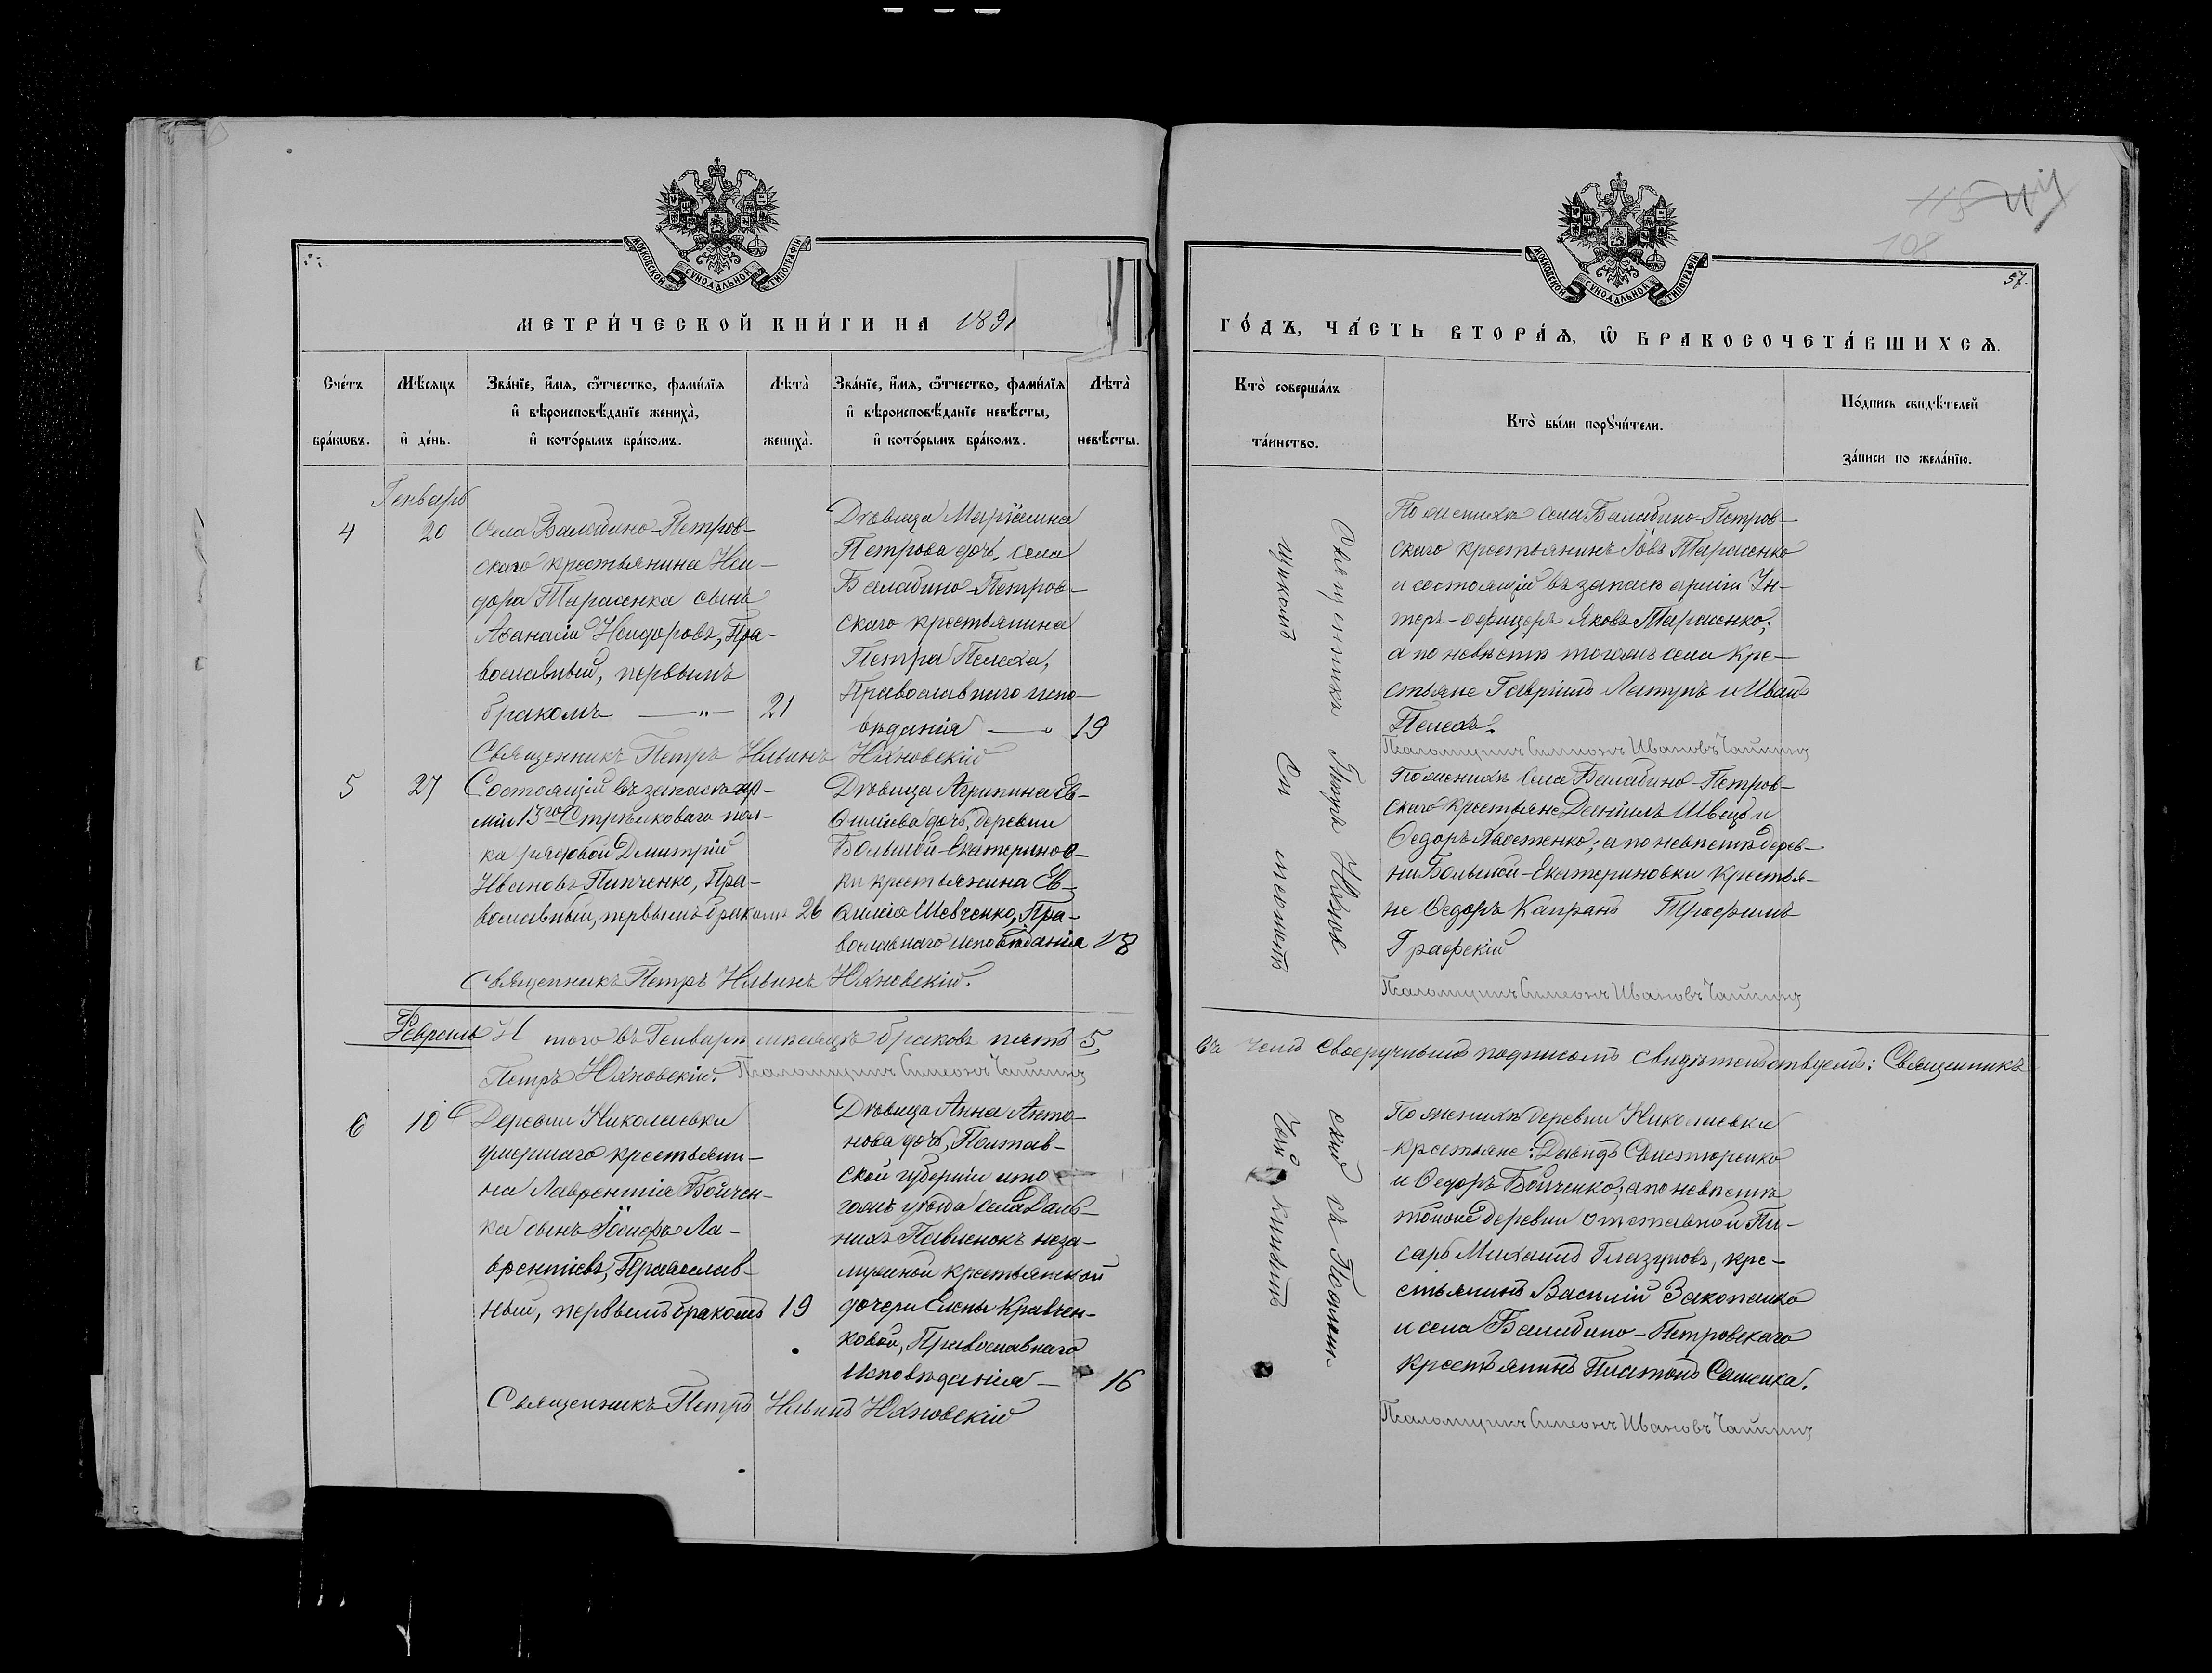 МОСКОВСКОЙ СѴНОДАЛЬНОЙ ТИПОГРАФІИ
МЕТРИ́ЧЕСКОЙ КНИ́ГИ НА 1891
Сче́тъ бра́кѡвъ.
Мѣ́сяцъ и҆ де́нь.
Зва́нїе, и҆́мѧ, ѻ҆́тчество, фами́лїѧ и҆ вѣроисповѣ́данїе жениха̀, и҆ кото́рымъ бра́комъ.
Лѣта̀ жениха̀.
Зва́нїе, и҆́мѧ, ѻ҆́тчество, фами́лїѧ и҆ вѣроисповѣ́данїе невѣ́сты, и҆ кото́рымъ бра́комъ.
Лѣта̀ невѣ́сты.
Генварь
4
20
Села Балабино-Петров-
скаго крестьянина Иси-
дора Тарасенка сынъ
Аѳанасій Исидоровъ, Пра-
вославный, первымъ
бракомъ —„—
21
Дѣвица Маріамна
Петрова дочь, села
Балабино-Петров-
скаго крестьянина
Петра Пелеха,
Православнаго испо-
вѣданія —„
19
Священникъ Петръ Ильинъ Юхновскій
5
27
Состоящій въ запасѣ ар-
міи 13го Стрѣлковаго пол-
ка рядовой Дмитрій
Ивановъ Пипченко, Пра-
вославный, первымъ бракомъ
26
Дѣвица Агрипина Ев-
ѳиміева дочь, деревни
Большой-Екатеринов-
ки крестьянина Ев-
ѳимія Шевченко, Пра-
вославнаго исповѣданія
18
Священникъ Петръ Ильинъ Юхновскій.
Февраль
Итого въ Генварѣ мѣсяцѣ браковъ пять 5,
Петръ Юхновскій. Псаломщикъ Симеонъ Чайкинъ
6
10
Деревни Николаевки
умершаго крестьяни-
на Лаврентія Бойчен-
ка сынъ Іосифъ Ла-
врентіевъ, Православ-
ный, первымъ бракомъ
19
Дѣвица Анна Анто-
нова дочь, Полтав-
ской губерніи и то-
гожъ уѣзда села Даль-
нихъ Павленокъ неза-
мужной крестьянской
дочери Елены Кравчен-
ковой, Православнаго
Исповѣданія —
16
Священникъ Петръ Ильинъ Юхновскій
115
108
57.
МОСКОВСКОЙ СѴНОДАЛЬНОЙ ТИПОГРАФІИ
ГО́ДЪ, ЧА́СТЬ ВТОРА́Ѧ, Ѡ҆ БРАКОСОЧЕТА́ВШИХСѦ.
Кто̀ соверша́лъ та́инство.
Кто̀ бы́ли порꙋчи́тели.
По́дпись свидѣ́телей за́писи по жела́нїю.
Священникъ Петръ Юхнов
скій съ Псалом-
щикомъ Си меономъ
Чай кинымъ
По женихѣ села Балабино-Петров-
скаго крестьянинъ Іовъ Тарасенко
и состоящій въ запасѣ арміи Ун-
теръ-офицеръ Яковъ Тарасенко;
а по невѣстѣ тогожъ села кре-
стьяне Гавріилъ Латунъ и Иванъ
Пелехъ.
Псаломщикъ Симеонъ Ивановъ Чайкинъ
По женихѣ села Балабино-Петров-
скаго крестьяне Даніилъ Швецъ и
Ѳедоръ; а по невѣстѣ дерев-
ни Большой-Екатериновки крестья-
не Ѳедоръ Капранъ Трофимъ
Графскій
Псаломщикъ Симеонъ Ивановъ Чайкинъ
въ чемъ своеручнымъ подписомъ свидѣтельствуемъ: Священникъ
По женихѣ деревни Николаевки
крестьяне: Давидъ Свистуренко
и Ѳедоръ Бойченко; а по невѣстѣ
тойже деревни отставной Пи-
сарь Михаилъ Глазуновъ, кре-
стьянинъ Василій Закопайко
и села Балабино-Петровскаго
крестьянинъ Платонъ Сашика.
Псаломщикъ Симеонъ Ивановъ Чайкинъ